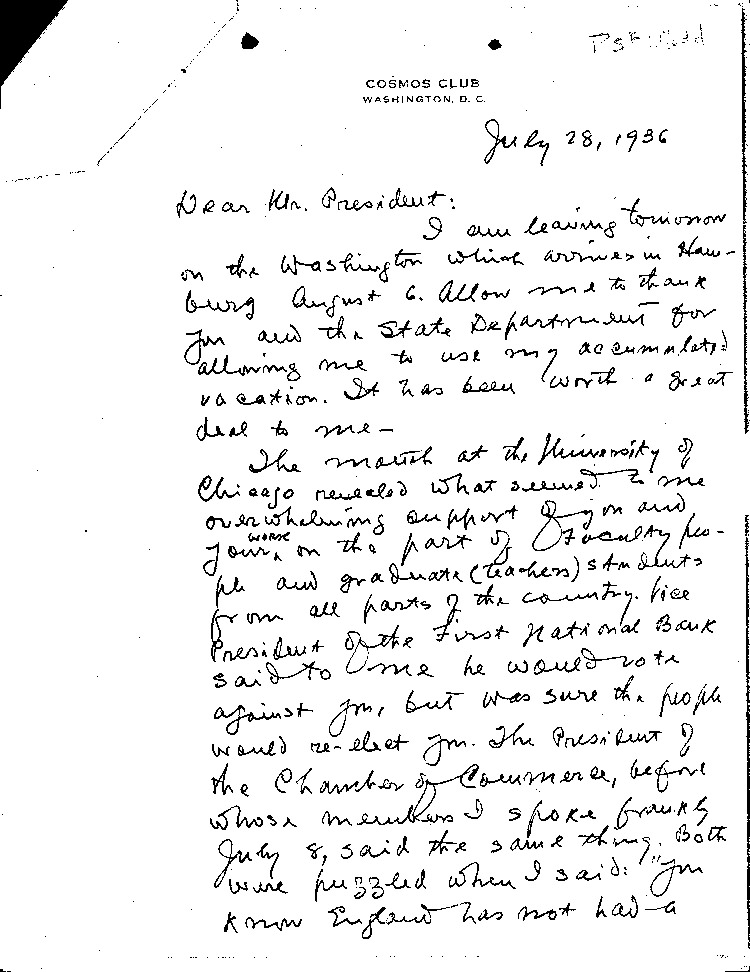 PSF
COSMOS CLUB
WASHINGTON, D. C.
July 28, 1936
Dear Mr. President:
I am leaving tomorrow
on the Washington which arrives in Ham-
burg August 6. Allow me to thank
you and the State Department for
allowing me to use my accumulated
vacation. It has been worth a great
deal to me—
The month at the University of
Chicago revealed what seemed to me
overwhelming support of you and
your work on the part of Faculty peo-
ple and graduate (teachers) students
from all parts of the country. Vice
President of the First National Bank
said to me he would vote
against you, but was sure the people
would re-elect you. The President of
the Chamber of Commerce, before
whose members I spoke frankly
July 8, said the same thing. Both
were puzzled when I said: "You
know England has not had a